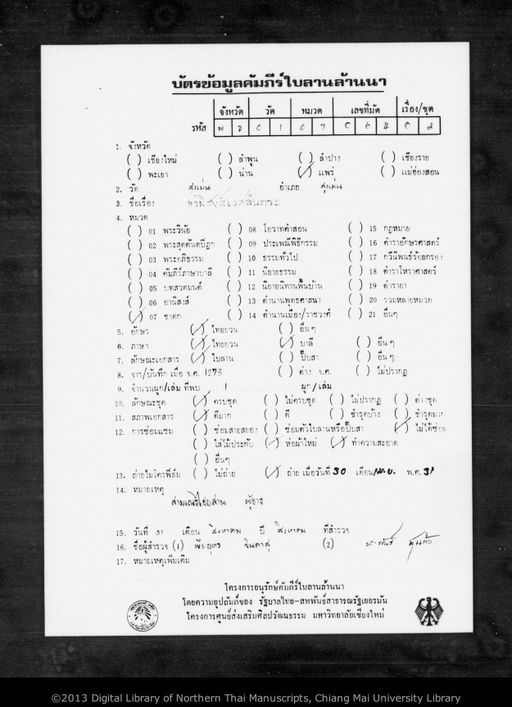 บัตรข้อมูลคัมภีร์ใบลานล้านนา
จังหวัด วัด หมวด เลขที่มัด เรื่อง/ชุด
รหัส
1. จังหวัด
( ) เชียงใหม่ ( ) ลำพูน ( ) ลำปาง ( ) เชียงราย
( ) พะเยา ( ) น่าน (✓) แพร่ ( ) แม่ฮ่องสอน
2. วัด สูงเม่น อำเภอ สูงเม่น
3. ชื่อเรื่อง
4. หมวด
( ) 01 พระวินัย ( ) 08 โอวาทคำสอน ( ) 15 กฎหมาย
( ) 02 พระสุตตันตปิฎก ( ) 09 ประเพณีพิธีกรรม ( ) 16 ตำราอักษรศาสตร์
( ) 03 พระอภิธรรม ( ) 10 ธรรมทั่วไป ( ) 17 กวีนิพนธ์ร้อยกรอง
( ) 04 คัมภีร์ภาษาบาลี ( ) 11 นิยายธรรม ( ) 18 ตำราโหราศาสตร์
( ) 05 บทสวดมนต์ ( ) 12 นิยายนิทานพื้นบ้าน ( ) 19 ตำรายา
( ) 06 อานิสงส์ ( ) 13 ตำนานพุทธศาสนา ( ) 20 รวมหลายหมวด
(✓) 07 ชาดก ( ) 14 ตำนานเมือง/ราชวงศ์ ( ) 21 อื่นๆ
5. อักษร (✓) ไทยยวน ( ) อื่นๆ
6. ภาษา (✓) ไทยยวน (✓) บาลี ( ) อื่นๆ
7. ลักษณะเอกสาร (✓) ใบลาน ( ) พับสา ( ) อื่นๆ
8. จาร/บันทึก เมื่อ จ.ศ. 1273 ( ) ค่าง จ.ศ. ( ) ไม่ปรากฏ
9. จำนวนผูก/เล่ม ที่พบ 1 ผูก/เล่ม
10. ลักษณะชุด (✓) ครบชุด ( ) ไม่ครบชุด ( ) ไม่ปรากฏ ( ) ต่างชุด
11. สภาพเอกสาร (✓) ดีมาก ( ) ดี ( ) ชำรุดบ้าง ( ) ชำรุดมาก
12. การซ่อมแซม ( ) ซ่อมสายสยอง ( ) ซ่อมตัวใบลานหรือพับสา (✓) ไม่ได้ซ่อม
( ) ใส่ไม้ประกับ (✓) ห่อผ้าใหม่ (✓) ทำความสะอาด
( ) อื่นๆ
13. ถ่ายไมโครฟิล์ม ( ) ไม่ถ่าย (✓) ถ่าย เมื่อวันที่ 30 เดือน เม.ย. พ.ศ. 31
14. หมายเหตุ
15. วันที่ 31 เดือน สิงหาคม ปี ที่สำรวจ
16. ชื่อผู้สำรวจ (1) (2)
17. หมายเหตุเพิ่มเติม
โครงการอนุรักษ์คัมภีร์ใบลานล้านนา
โดยความอุปถัมภ์ของ รัฐบาลไทย-สหพันธ์สาธารณรัฐเยอรมัน
โครงการศูนย์ส่งเสริมศิลปวัฒนธรรม มหาวิทยาลัยเชียงใหม่
©2013 Digital Library of Northern Thai Manuscripts, Chiang Mai University Library